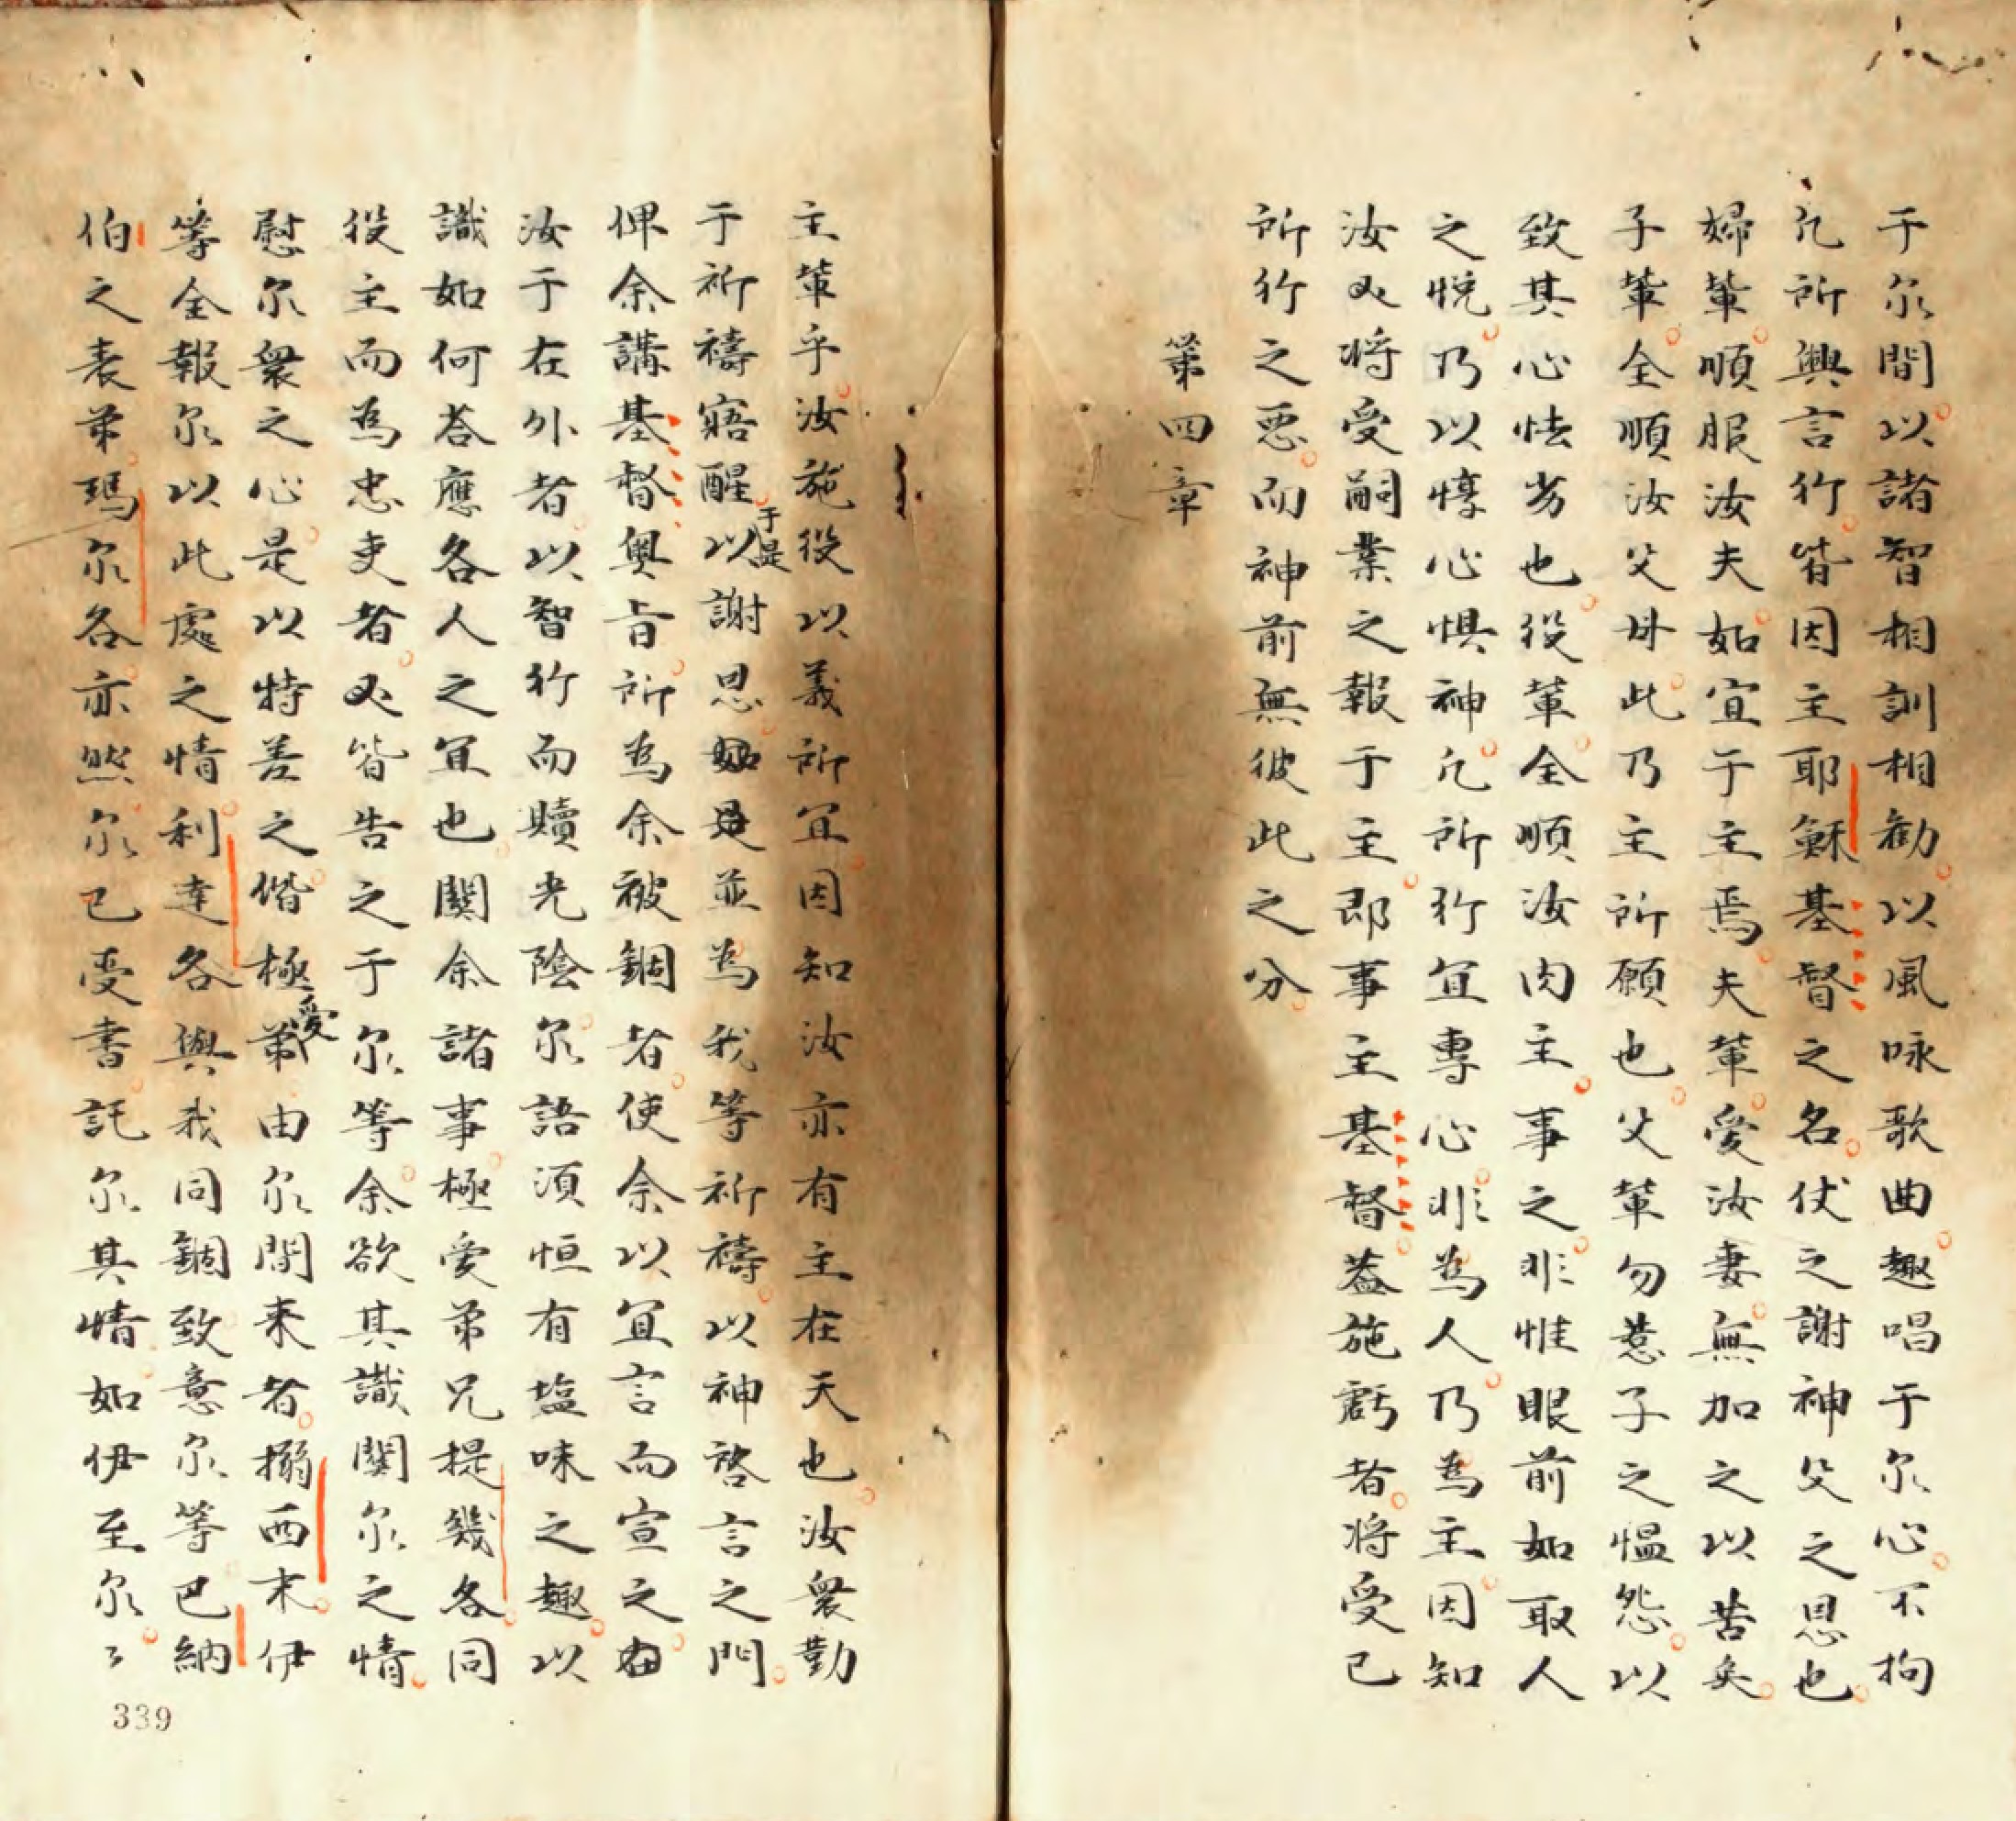 于尔間以諸智相訓相勸以風咏歌曲趣唱于尔心不拘
凢所興言行皆因主耶穌基督之名仗之謝神父之恩也
婦軰順服汝夫如宜于主焉夫軰愛汝妻無加之以苦矣
子軰全順汝父母此乃主所願也父軰勿惹子之愠怨以
致其心怯劣也役軰全順汝肉主事之非惟眼前如取人
之悅乃以惇心惧神凢所行宜專心非為人乃為主因知
汝必将受嗣業之報于主即事主基督葢施虧者将受已
所行之惡而神前無彼此之分
第四章
主軰乎汝施役以義所宜因知汝亦有主在天也汝衆勤
于祈禱寤醒于是以謝恩並為我等祈禱以神啓言之門
俾余講基督奧旨所為余被錮者使余以宜言而宣之
汝于在外者以智行而贖光陰尔語須恒有塩味之趣以
識如何荅應各人之宜也關余諸事極愛弟兄提幾各同
役主而為忠吏者必皆告之于尔等余欲其識關尔之情
慰尔衆之心是以特差之偕極愛弟由尔間来者搦西末伊
等全報尔以此處之情利達各與我同錮致意尔等巴納
伯之表弟瑪尔各亦然尔已受書託尔其情如伊至尔〻
339